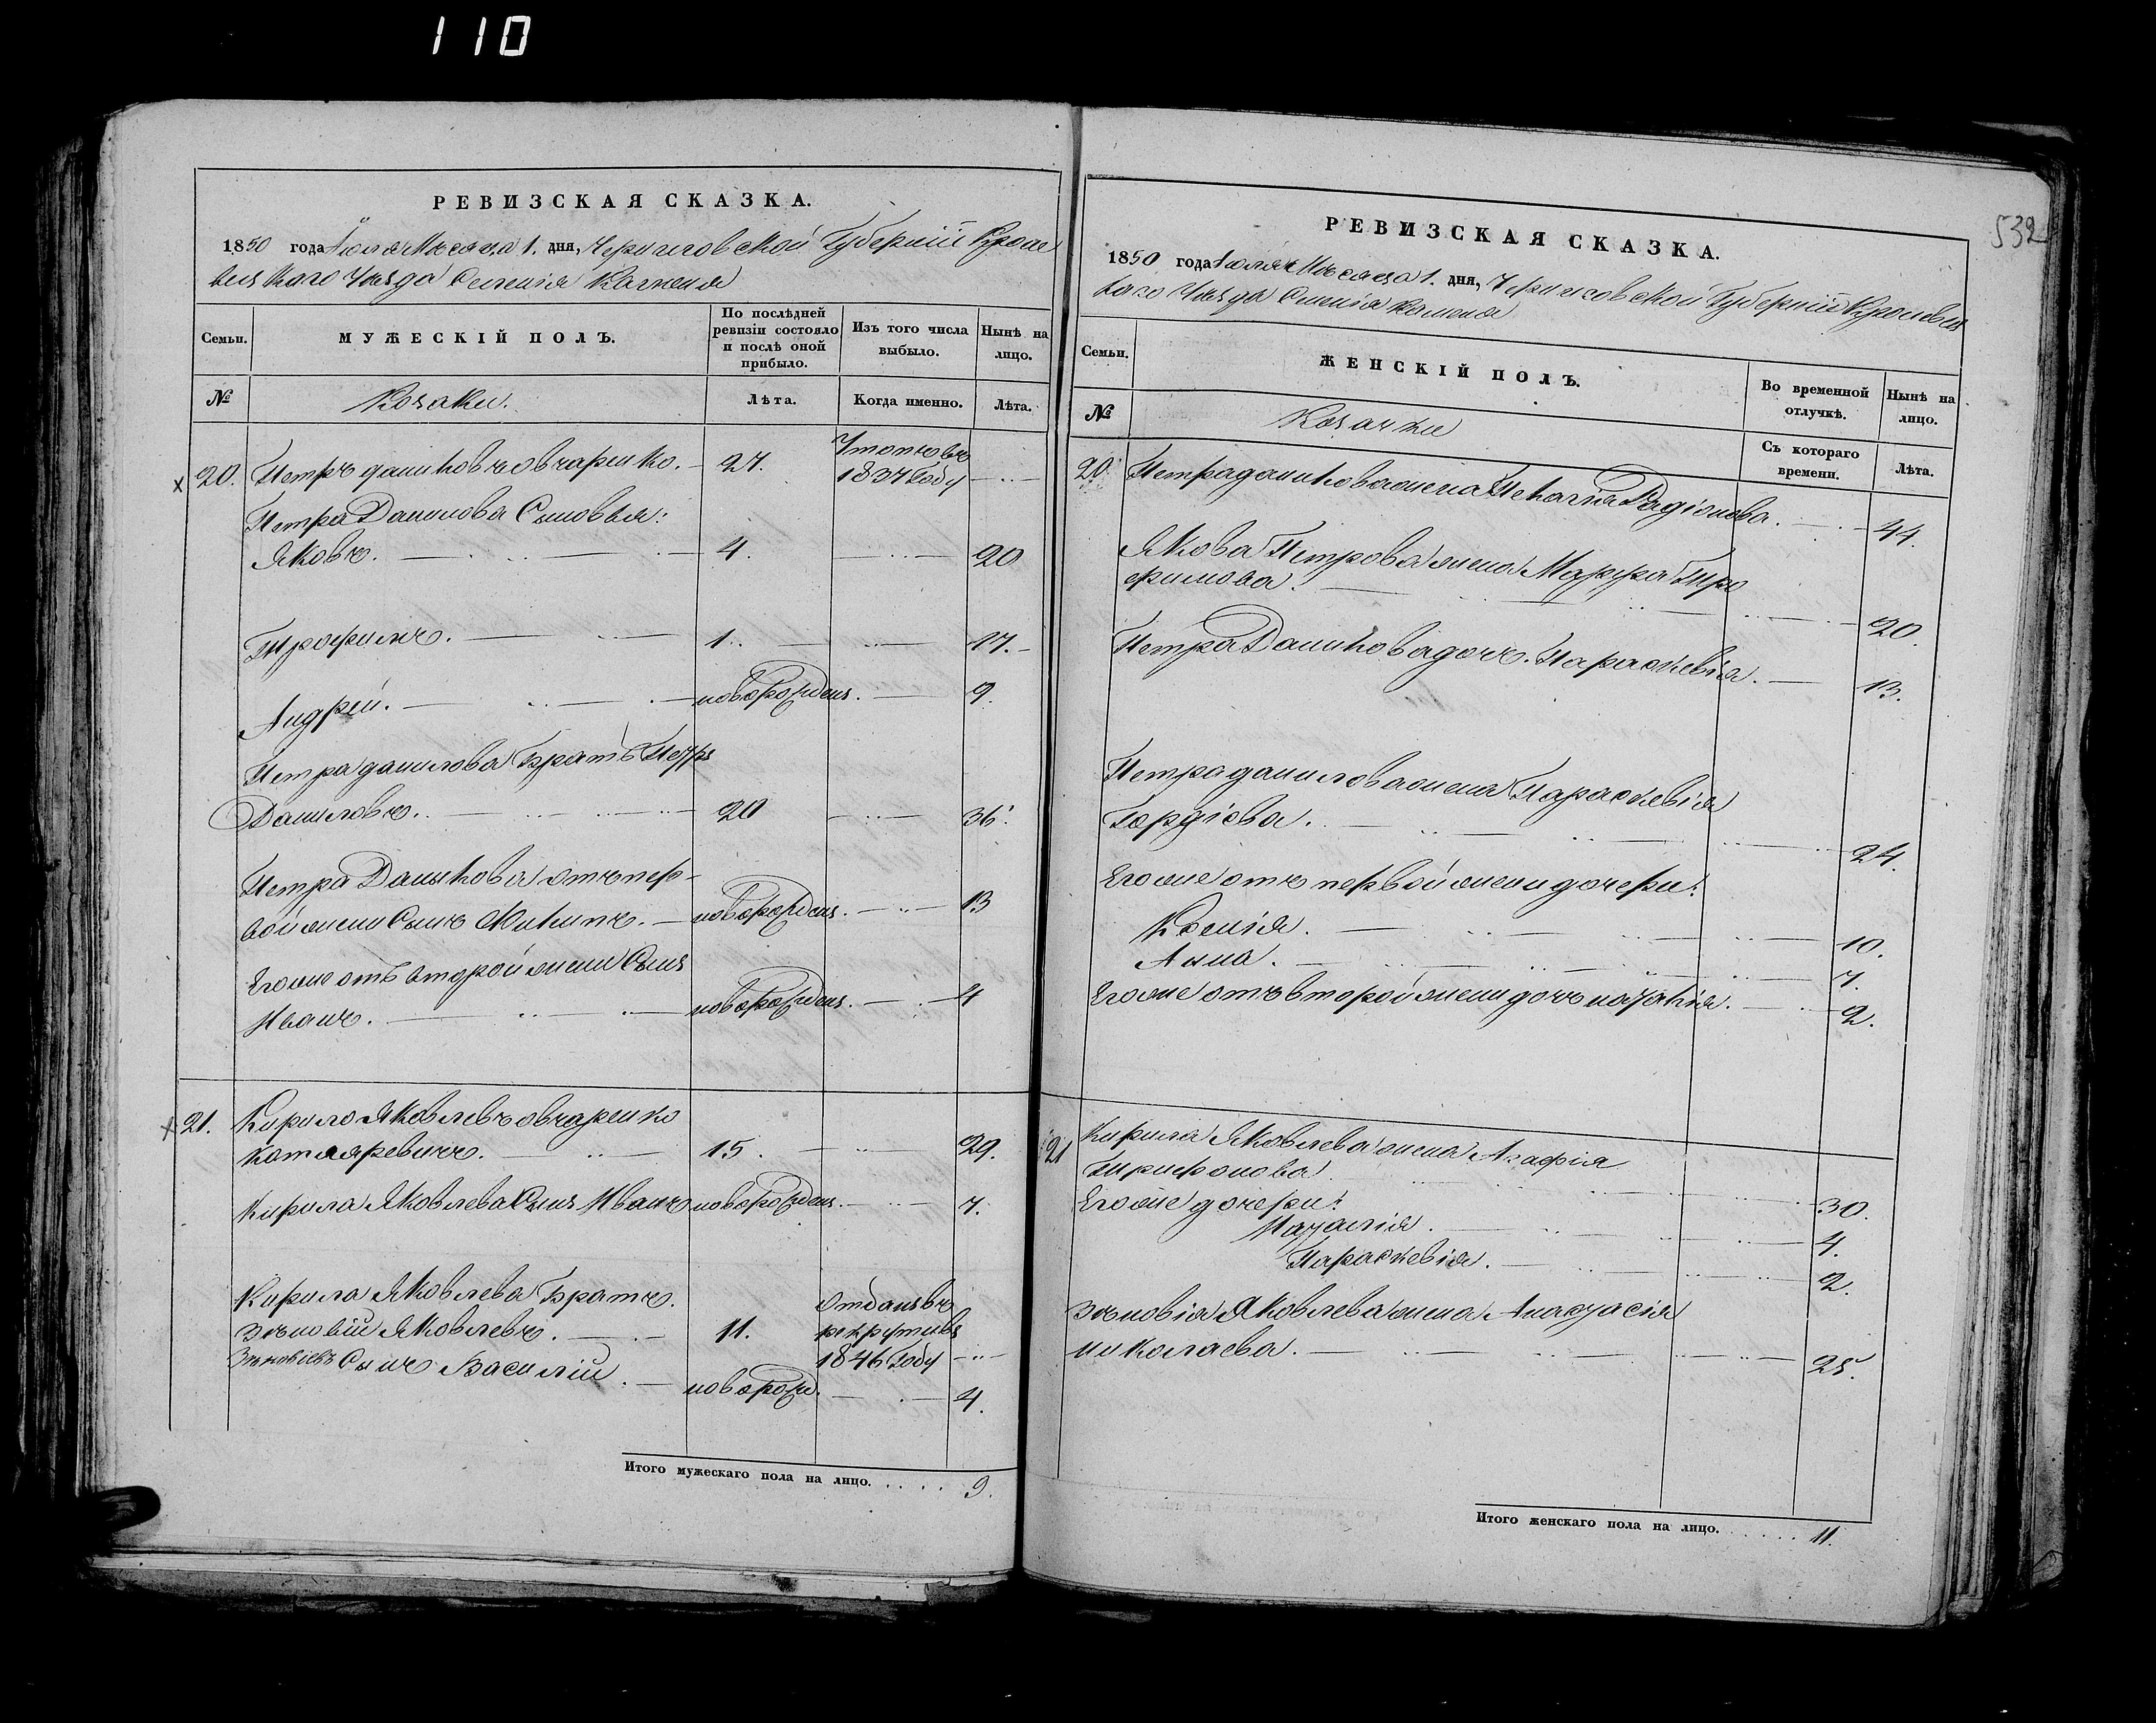 110
РЕВИЗСКАЯ СКАЗКА.
1850 года Июля Месяца 1. дня, Черниговской Губернии Кроле
вецкаго Уезда Селения Каменя
Семьи.
МУЖЕСКІЙ ПОЛЪ.
По послѣдней ревизіи состояло и послѣ оной прибыло.
Изъ того числа выбыло.
Нынѣ на лицо.
№
Козаки.
Лѣта.
Когда именно.
Лѣта.
20. Петръ даниловъ овчаренко. 27. Утопъ въ
1837 Году
Петра Данилова Сыновья:
Яковъ. 4. 20
Трофимъ. 1. 17.
Андрей. новорожден. 9.
Петра данилова Братъ Петръ
Даниловъ. 20 36.
Петра Данилова отъ пер-
вой жены Сынъ Никита. новорожден. 13
Его же отъ второй жены Сынъ
Иванъ. новорожден. 4
21. Кирило Яковлевъ овчаренко
котляревичъ. 15. 29.
Кирила Яковлева Сынъ Иванъ новорожден. 7.
Кирила Яковлева Братъ.
Зѣновій Яковлевъ. 11. Отданъ въ
рекруты въ
1846 Году
Зѣновіевъ Сынъ Василій. новорож. 4.
Итого мужескаго пола на лицо. 9.
532
РЕВИЗСКАЯ СКАЗКА.
1850 года Июля Месяца 1. дня, Черниговской Губернии Кролевец
каго Уезда Селения Каменя
Семьи.
ЖЕНСКІЙ ПОЛЪ.
Во временной отлучкѣ.
Нынѣ на лицо.
№
Козачки
Съ котораго времени.
Лѣта.
20. Петра данилова жена Пелагия Радіонова. 44.
Якова Петрова жена Марфа Тро
фимова. 20.
Петра Данилова дочь. Параскевія. 13.
Петра данилова жена Параскевія
Гордіева. 24.
Его же отъ первой жены дочери:
Ксенія. 10.
Анна. 7.
Его же отъ второй жены дочь наталія. 2.
21 Кирила Яковлева жена Агафія
Трифонова. 30.
Его же дочери:
Наталія. 4.
Параскевія. 2.
Зѣновія Яковлева жена Анастасія
николаева. 25.
Итого женскаго пола на лицо. 11.